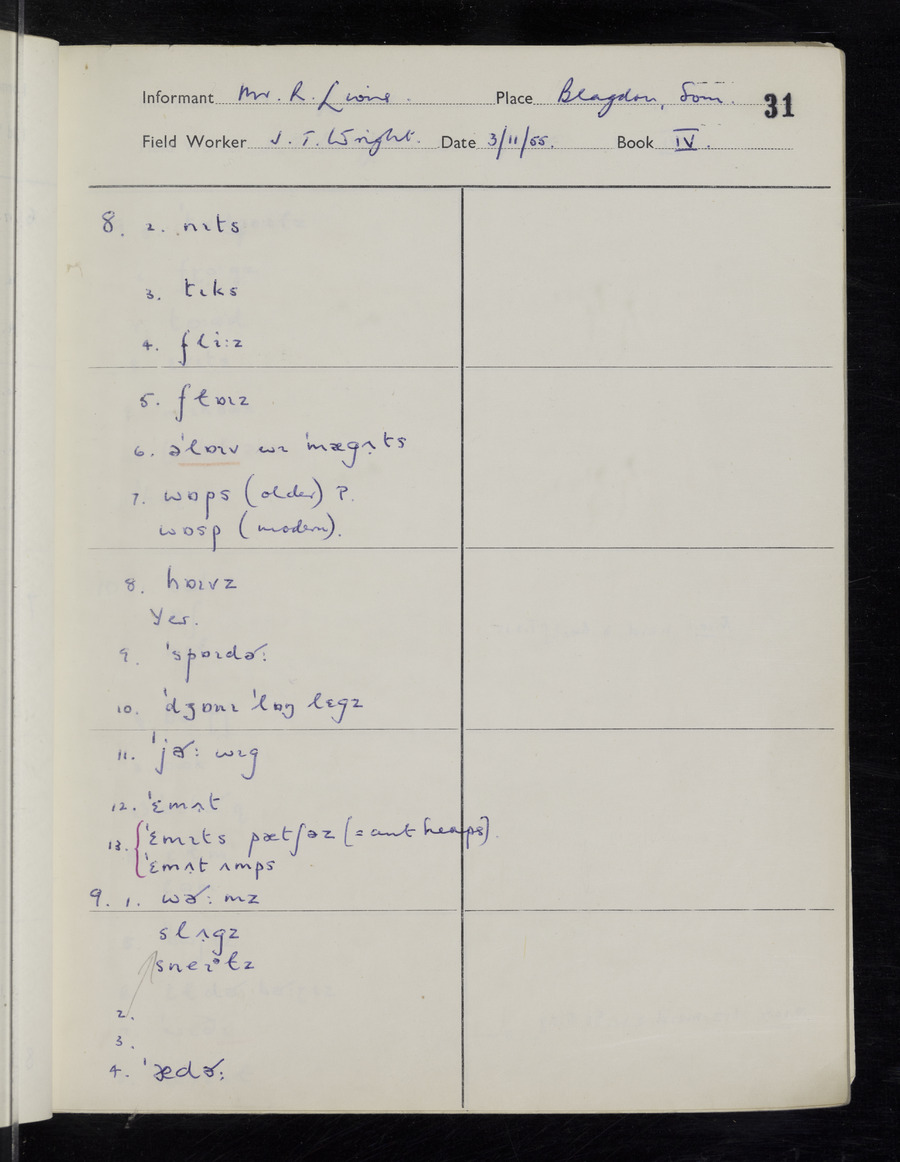 Informant Mr. R. Lyons. Place Blagdon, Som. 31
Field Worker J. T. Wright. Date 3/11/55. Book IV.
8. 2. nɪts
3. tɪks
4. fliːz
5. flɒɪz
6. əˈlɒɪv wɪ ˈmægʌ̣ts
7. wɒps (older) ?.
wɒsp (modern).
8. hɒɪvz
Yes.
9. ˈspɒɪdɚː
10. ˈdʒɒnɪ ˈlɒŋ lɛgz
11. ˈjɚː wɪg
12. ˈɛmʌ̣t
13. ˈɛmɪts pætʃəz (= ant heaps).
ˈɛmʌ̣t ʌmps
9. 1. wɚːmz
slʌ̣gz
sneɪᵊɫz
2.
3.
4. ˈædɚː